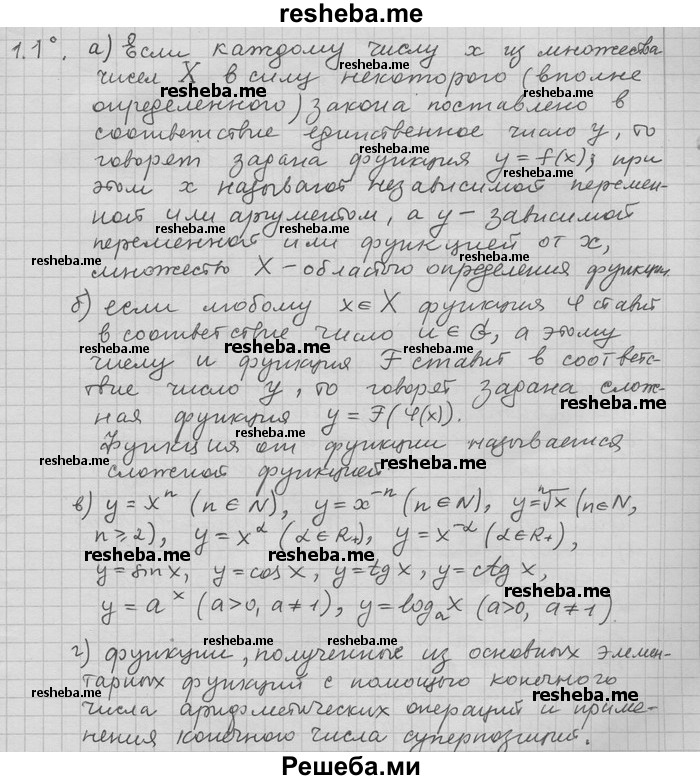 resheba.me
1.1°. а) Если каждому числу x из множества
чисел X в силу некоторого (вполне
resheba.me
определенного) закона поставлено в
соответствие единственное число y, то
resheba.me
говорят задана функция y = f(x); при
этом x называют независимой перемен-
resheba.me
ной или аргументом, а y – зависимой
переменной или функцией от x,
resheba.me
resheba.me
множество X – областью определения функции.
б) если любому x ∈ X функция φ ставит
в соответствие число u ∈ G, а этому
resheba.me
числу u функция F ставит в соответс-
твие число y, то говорят задана слож-
resheba.me
ная функция y = F(φ(x)).
resheba.me
Функция от функции называется
resheba.me
сложной функцией
в) y = xⁿ (n ∈ N), y = x⁻ⁿ (n ∈ N), y = ⁿ√x (n ∈ N,
n ≥ 2), y = x^α (α ∈ R₊), y = x^-α (α ∈ R₊),
resheba.me resheba.me
y = sin x, y = cos x, y = tg x, y = ctg x,
y = aˣ (a > 0, a ≠ 1), y = logₐ x (a > 0, a ≠ 1)
resheba.me resheba.me
г) функции, полученные из основных элемен-
тарных функций с помощью конечного
resheba.me resheba.me
числа арифметических операций и приме-
resheba.me
нения конечного числа суперпозиций.
Решеба.ми